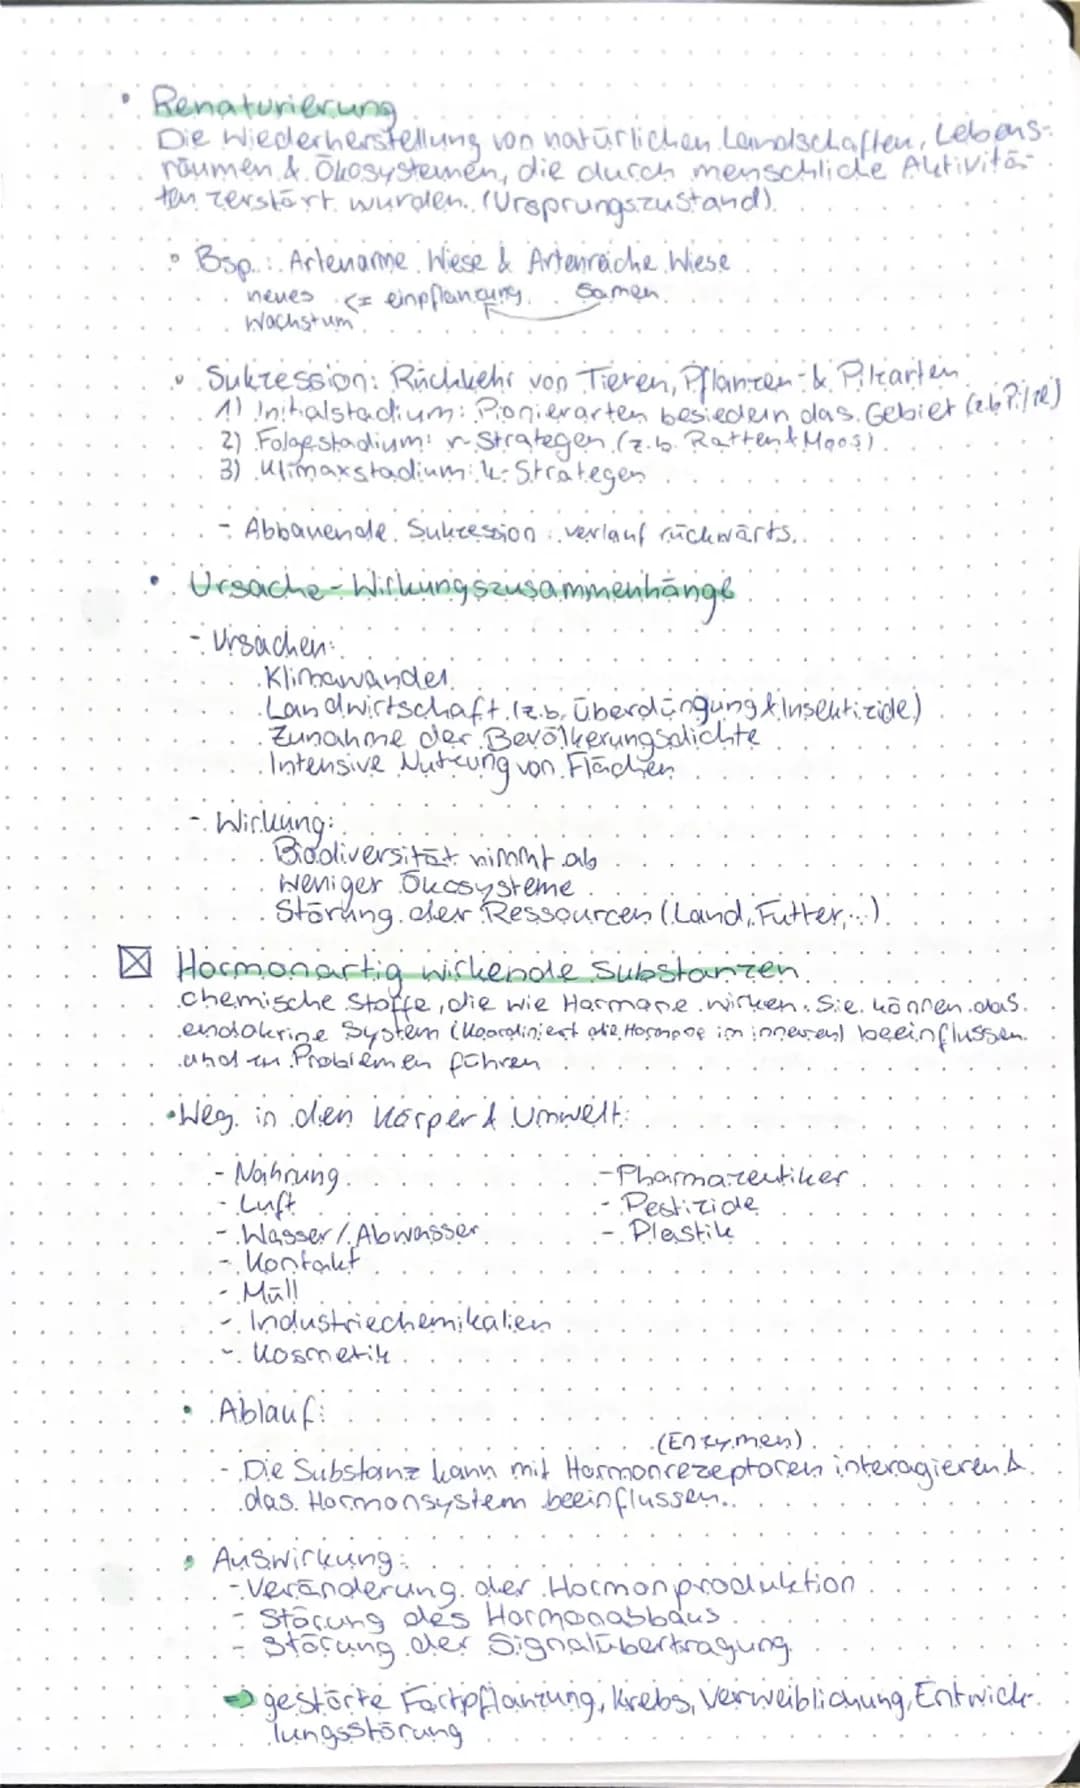 • Renaturierung
Die Wiederherstellung von natürlichen Landschaften, Lebens-
räumen & Ökosystemen, die durch menschliche Aktivitä-
ten zerstört wurden. (Ursprungszustand)
• Bsp.: Artenarme Wiese & Artenreiche Wiese
neues <= einpflanzung Samen
Wachstum
• Sukzession: Rückkehr von Tieren, Pflanzen- & Pilzarten
1) Initialstadium: Pionierarten besiedeln das Gebiet (z.b Pilze)
2) Folgestadium: r-Strategen (z.b. Ratten & Moos)
3) Klimaxstadium: k-Strategen
- Abbauende Sukzession: verlauf rückwärts.
• Ursache-Wirkungszusammenhänge
- Ursachen:
Klimawandel
Landwirtschaft (z.b. Überdüngung & Insektizide)
Zunahme der Bevölkerungsdichte
Intensive Nutzung von Flächen
- Wirkung:
Biodiversität nimmt ab
Weniger Ökosysteme
Störung der Ressourcen (Land, Futter,...)
☒ Hormonartig wirkende Substanzen
chemische Stoffe, die wie Hormone wirken. Sie können das
endokrine System (koordiniert die Hormone im inneren) beeinflussen
und zu Problemen führen
• Weg in den Körper & Umwelt:
- Nahrung - Pharmazeutiker
- Luft - Pestizide
- Wasser / Abwasser - Plastik
- Kontakt
- Müll
- Industriechemikalien
- Kosmetik
• Ablauf:
(Enzymen)
- Die Substanz kann mit Hormonrezeptoren interagieren &
das Hormonsystem beeinflussen.
• Auswirkung:
- Veränderung der Hormonproduktion
- Störung des Hormonabbaus
- Störung der Signalübertragung
➡ gestörte Fortpflanzung, Krebs, Verweiblichung, Entwick-
lungsstörung